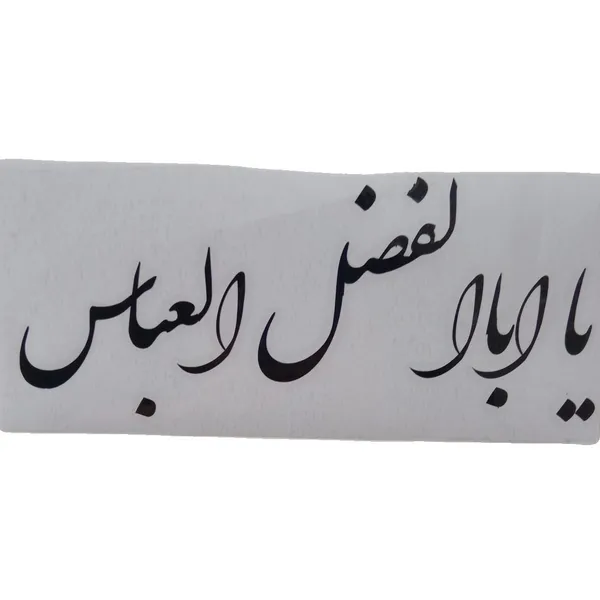 یا ابالفضل العباس